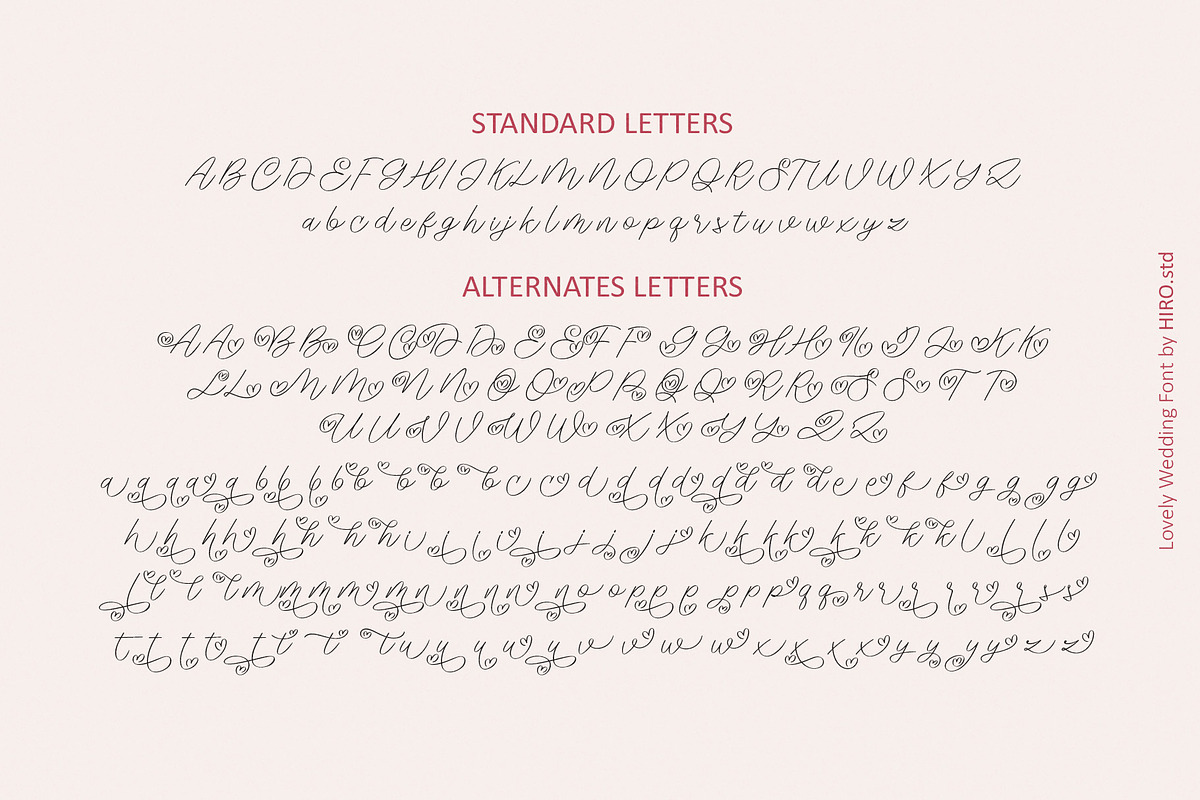 STANDARD LETTERS
A B C D E F G H I J K L M N O P Q R S T U V W X Y Z
a b c d e f g h i j k l m n o p q r s t u v w x y z
ALTERNATES LETTERS
A A B B C C D D E E F F G G H H I I J J K K
L L M M N N O O P P Q Q R R S S T T
U U V V W W X X Y Y Z Z
a a a a a b b b b b b b c c d d d d d d d d e e f f g g g g
h h h h h h h h i i i i i j j j j j k k k k k k k k l l l l
l l l l m m m m m n n n n n o o p p p p p p q q r r r r r r s s
t t t t t t t t u u u u u v v w w x x x x y y y y z z
Lovely Wedding Font by HIRO.std